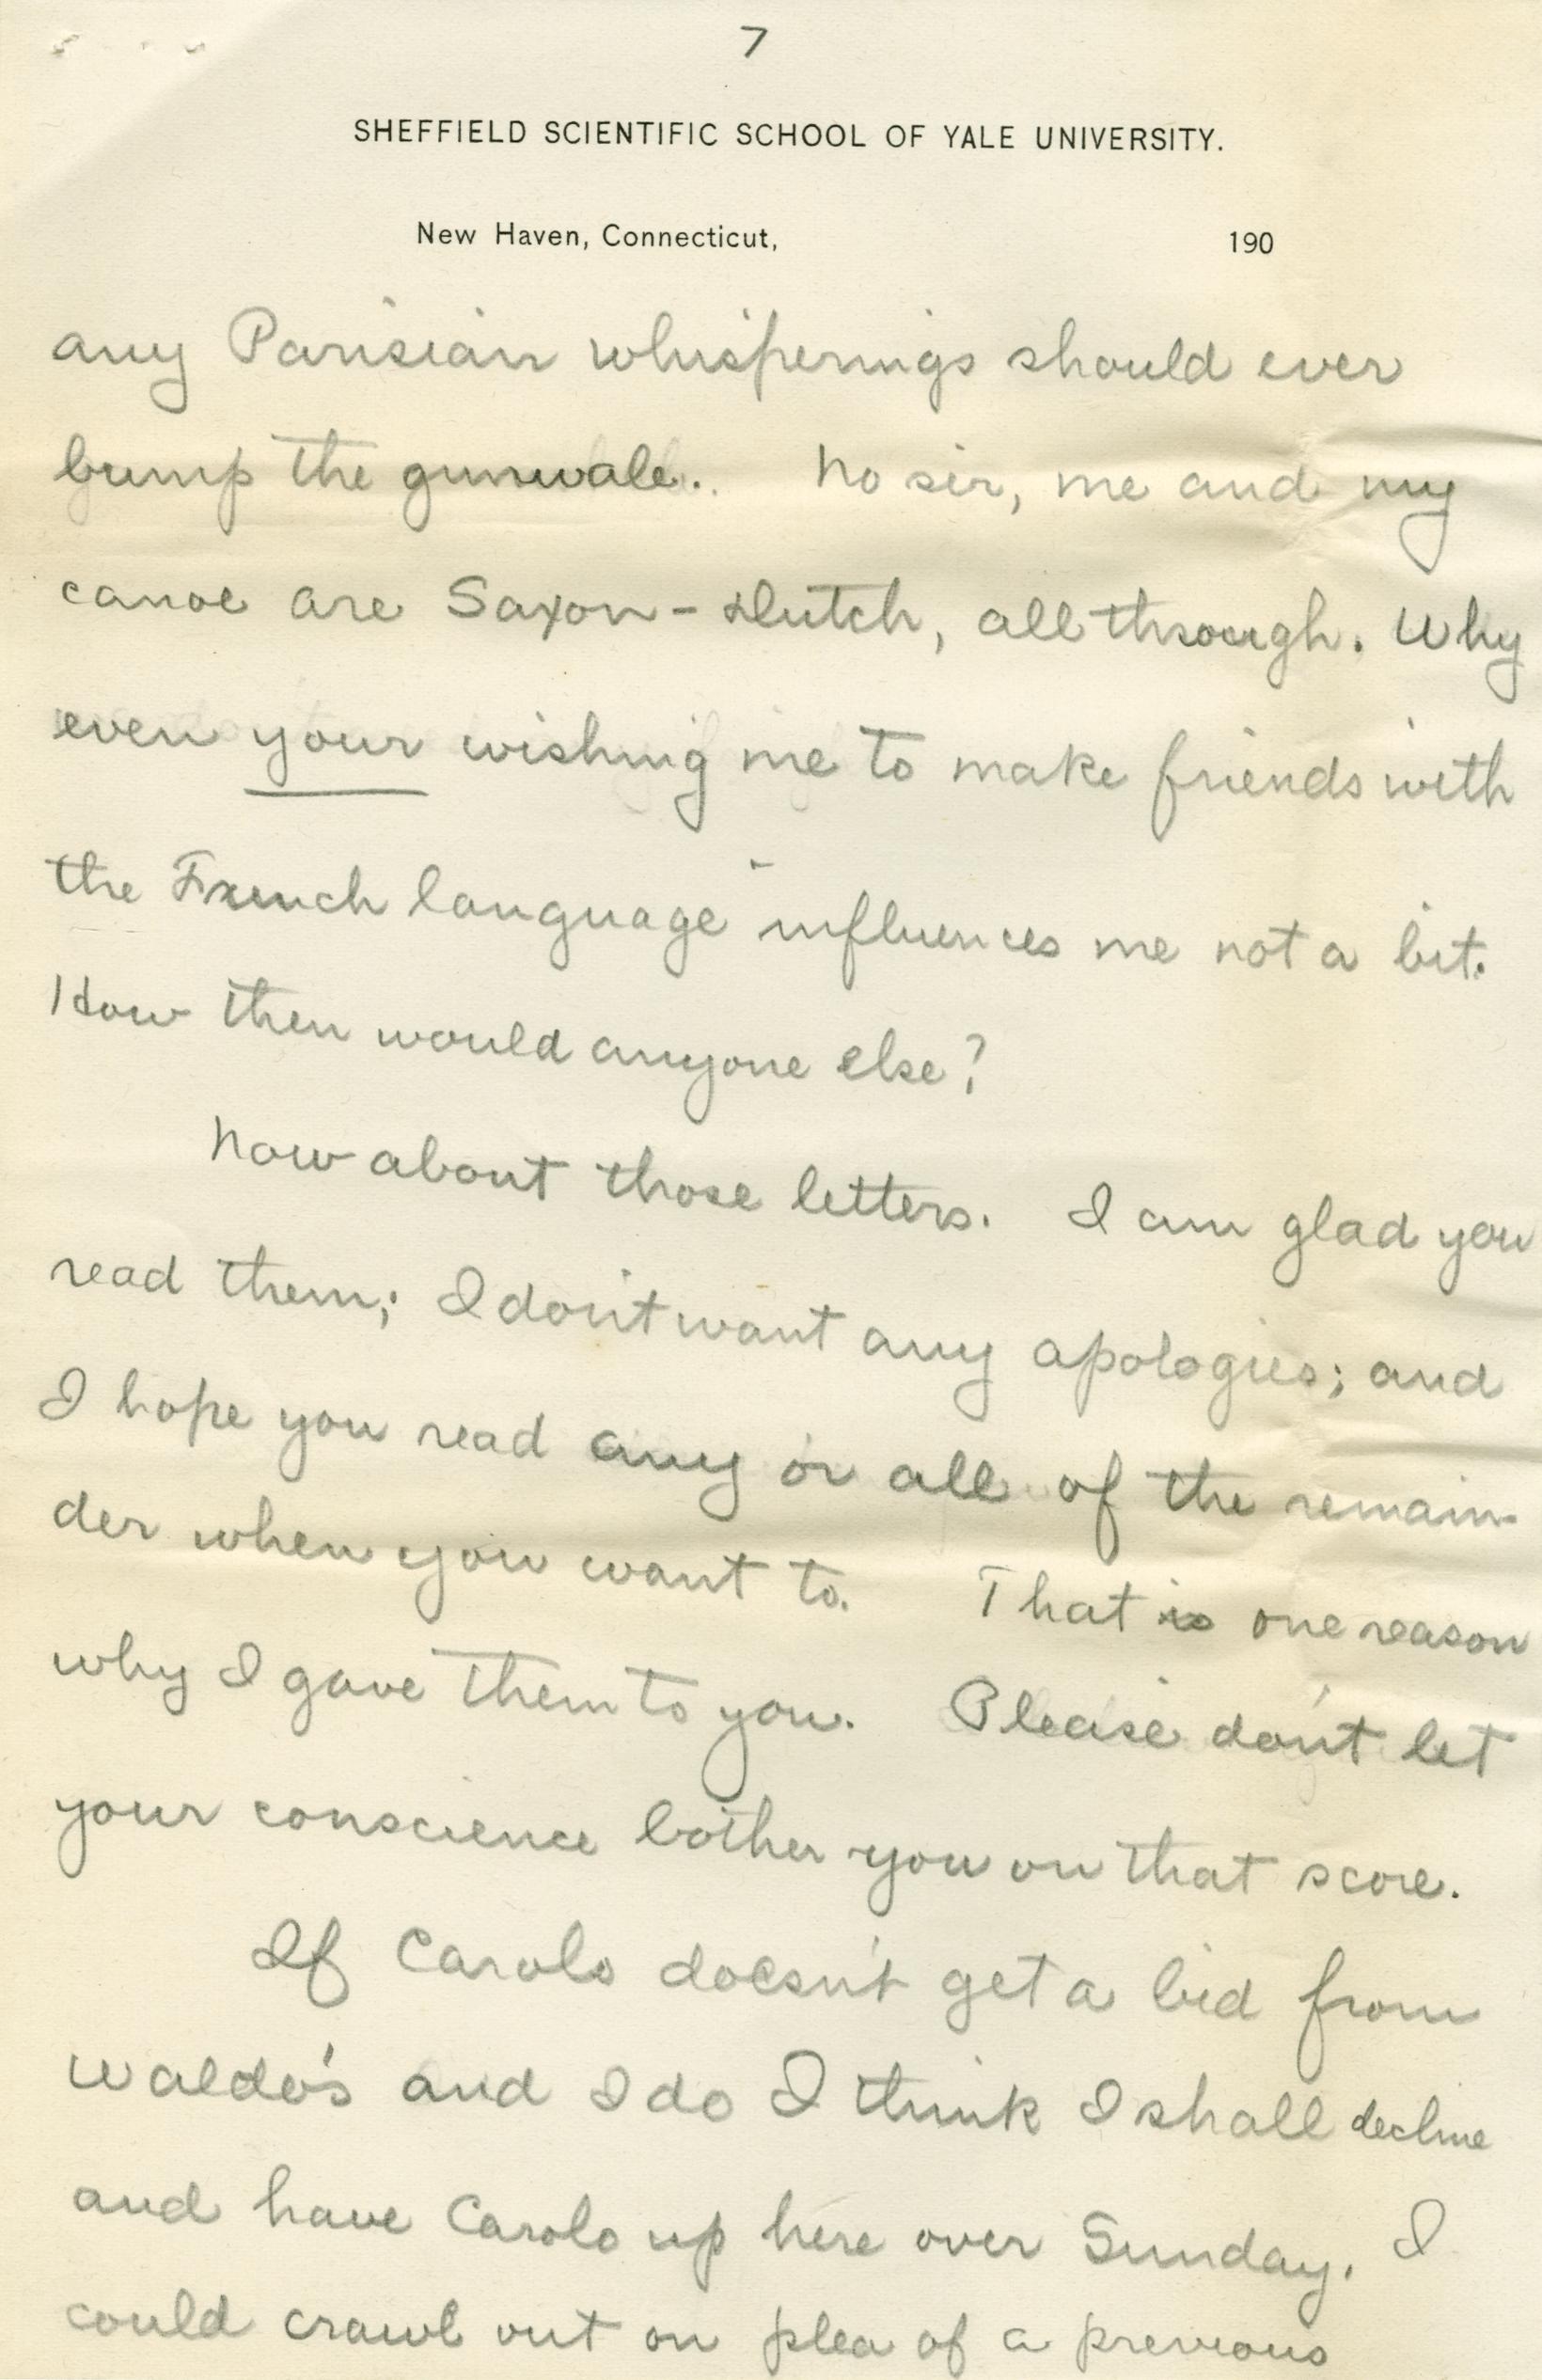 7
SHEFFIELD SCIENTIFIC SCHOOL OF YALE UNIVERSITY.
New Haven, Connecticut, 190
any Parisian whisperings should ever
bump the gunwale. No sir, me and my
canoe are Saxon-Dutch, all through. Why
even your wishing me to make friends with
the French language influences me not a bit.
How then would anyone else?
Now about those letters. I am glad you
read them; I don't want any apologies; and
I hope you read any or all of the remain-
der when you want to. That is one reason
why I gave them to you. Please don't let
your conscience bother you on that score.
If Carolo doesn't get a bid from
Waldo's and I do I think I shall decline
and have Carolo up here over Sunday. I
could crawl out on plea of a previous